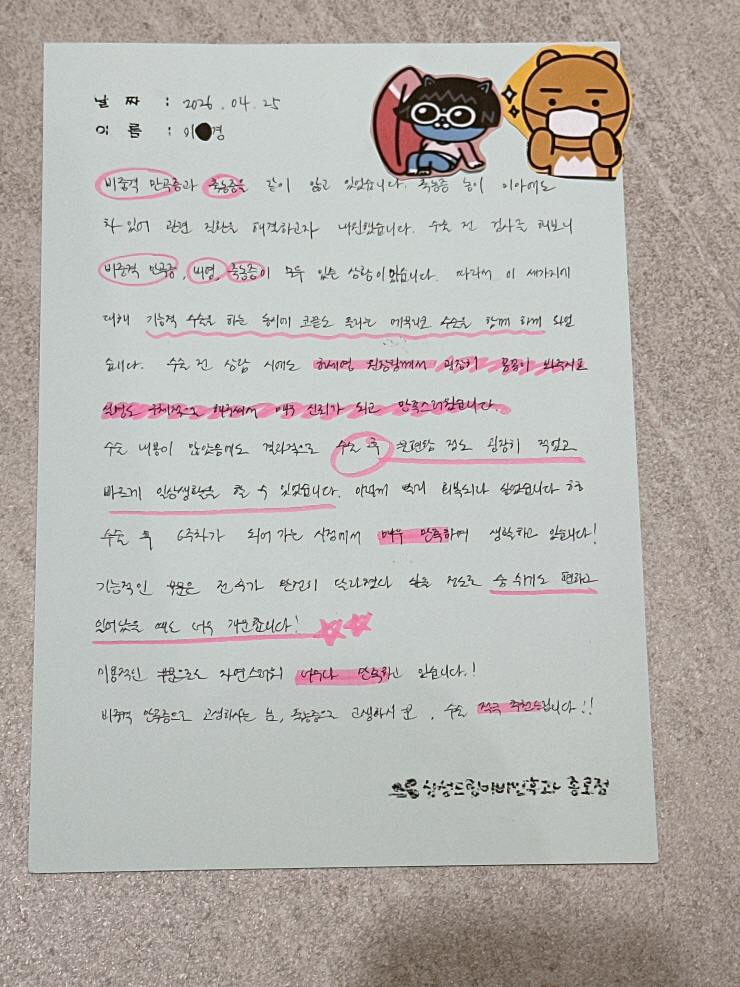 날 짜 : 2026. 04. 25
이 름 : 이 경
비중격 만곡증과 축농증을 같이 앓고 있었습니다. 축농증 농이 이마에도
차 있어 관련 질환을 해결하고자 내원했습니다. 수술 전 검사를 해보니
비중격 만곡증, 비염, 축농증이 모두 있는 상황이었습니다. 따라서 이 세가지에
대해 기능적 수술을 하는 동시에 코끝도 올리는 수술을 함께 하게 되었
습니다. 수술 전 상담 시에도 원장님께서 굉장히 꼼꼼히 봐주시고
설명도 구체적으로 해주셔서 매우 신뢰가 되고 만족스러웠습니다.
수술 내용이 많았음에도 결과적으로 수술 후 불편함 정도 굉장히 적었고
빠르게 일상생활을 할 수 있었습니다. 이렇게 빨리 회복되나 싶었습니다 ㅎㅎ
수술 후 6주차가 되어 가는 시점에서 매우 만족하며 생활하고 있습니다!
기능적인 부분은 전 후가 완전히 달라졌다 싶을 정도로 숨 쉬기도 편하고
일어났을 때도 너무 개운합니다!
미용적인 부분으로도 자연스러워 너무나 만족하고 있습니다.!
비중격 만곡증으로 고생하시는 분, 축농증으로 고생하시는 분, 수술 적극 추천드립니다!!
삼성드림이비인후과 종로점